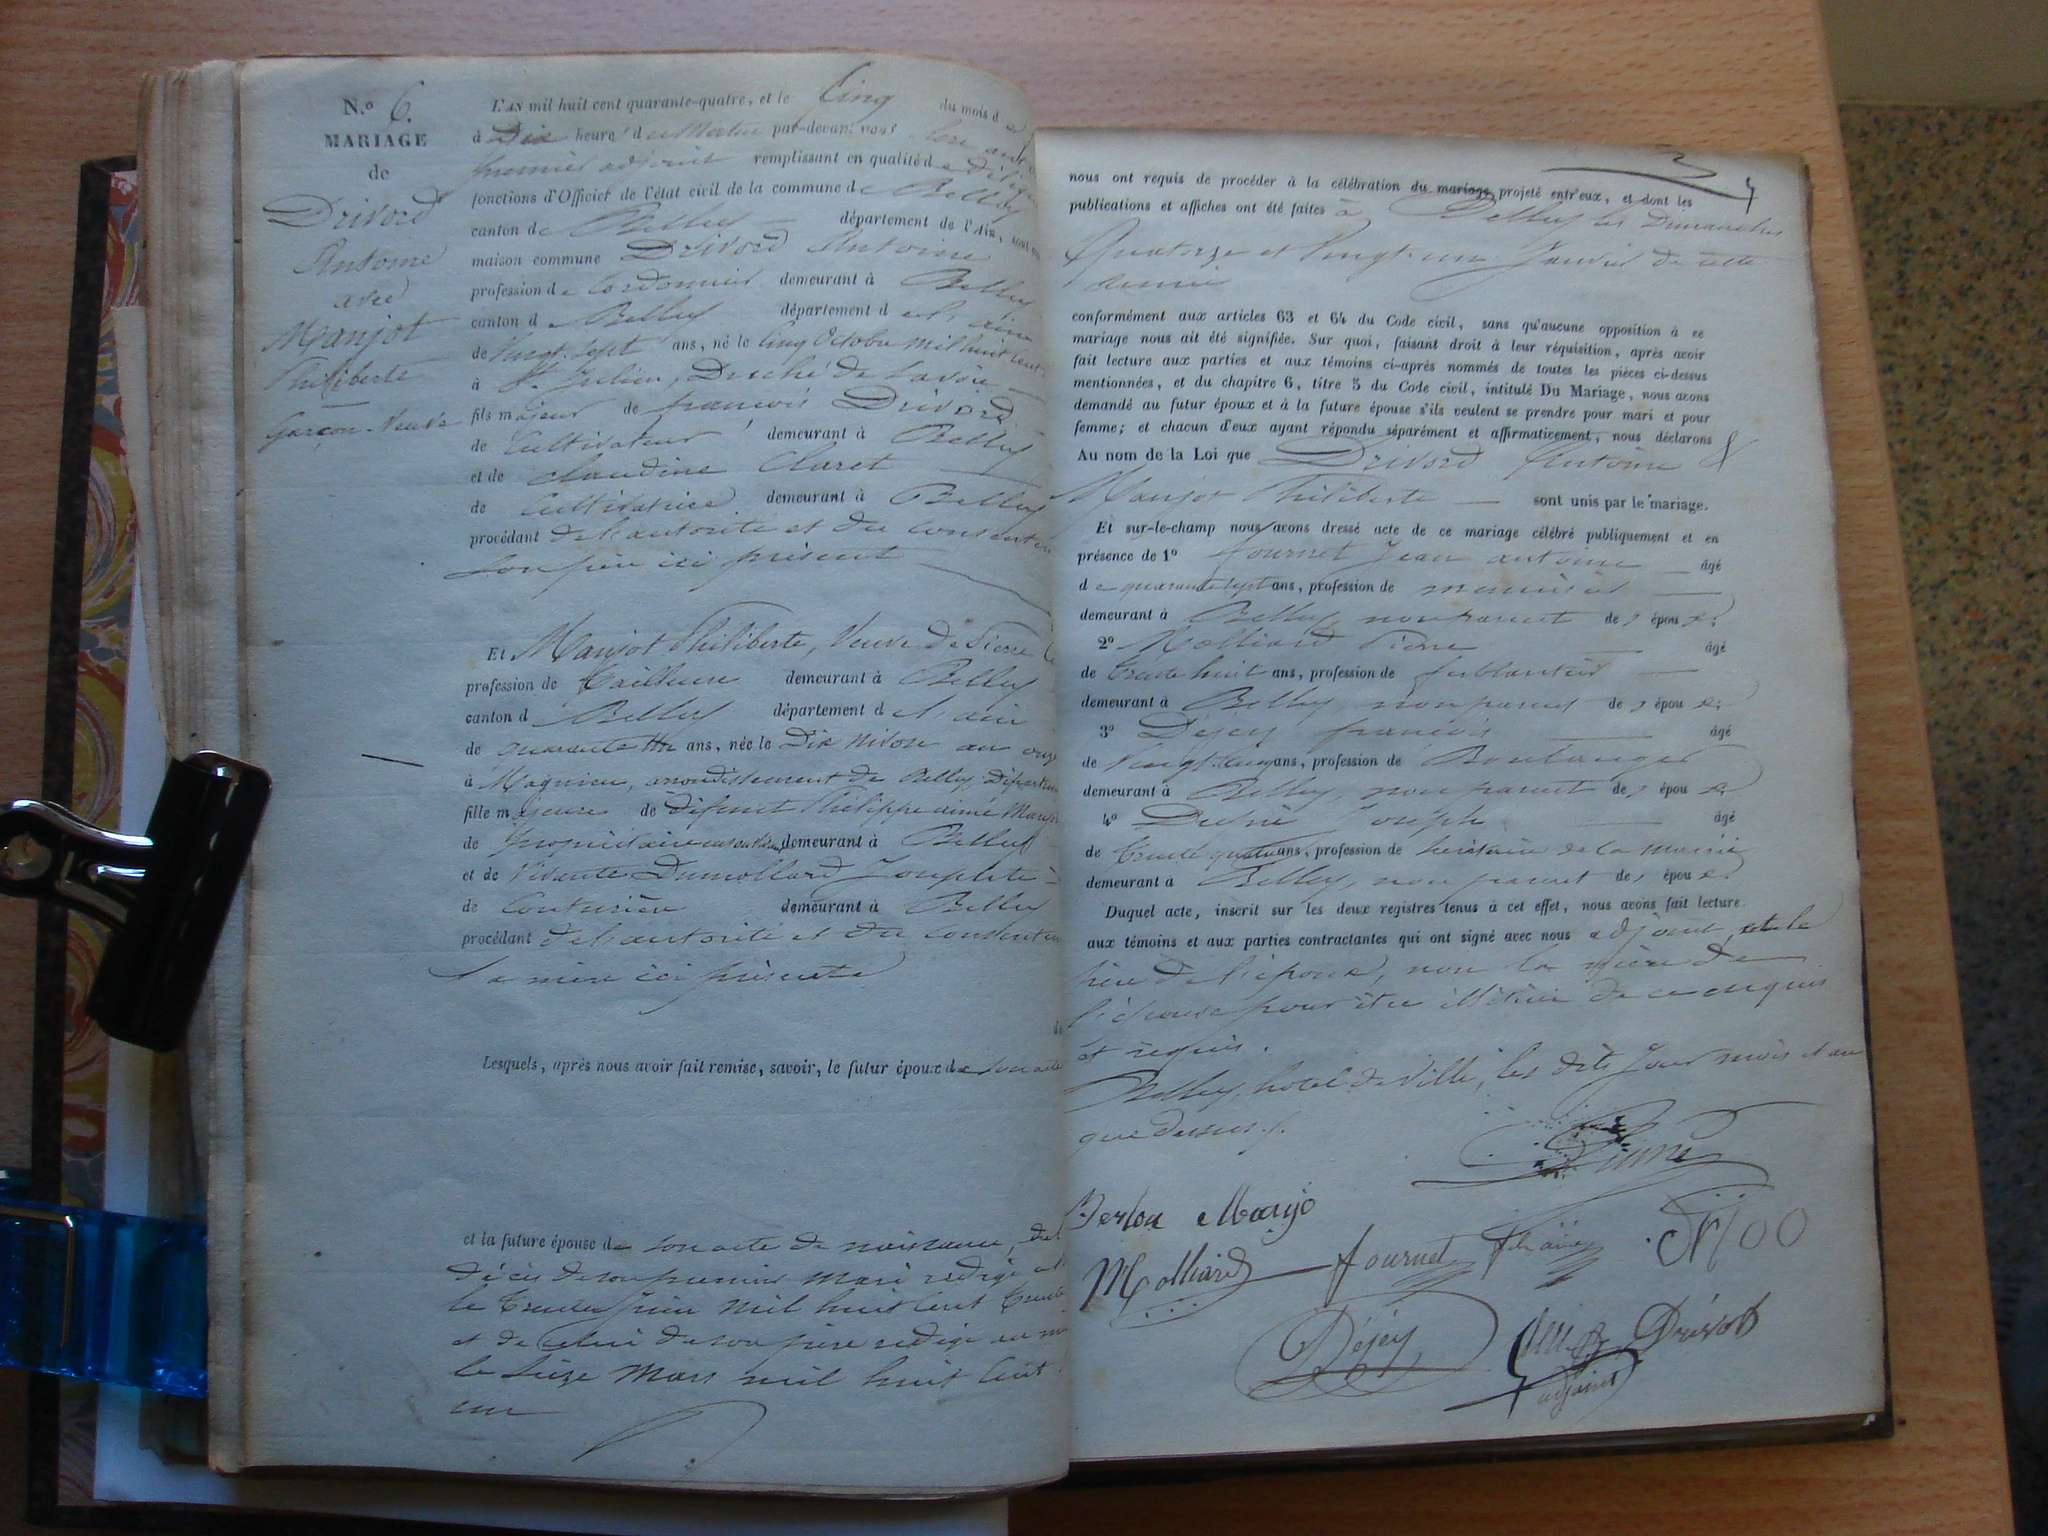 N.º 6.
MARIAGE
de
Drivord
Antoine
avec
Manjot
Philiberte
Garçon-Veuve
L'AN mil huit cent quarante-quatre, et le Cinq du mois d
à Dix heure du Matin par-devant nous
premier adjoint remplissant en qualité de
fonctions d'Officier de l'état civil de la commune de Belley
canton de Belley département de l'Ain, sont
maison commune Drivord Antoine
profession de Cordonnier demeurant à Belley
canton de Belley département de l'ain
de Vingt-sept ans, né le Cinq Octobre mil huit cent
à St. Julien, Duché de Savoie
fils majeur de francois Drivord
de Cultivateur demeurant à Belley
et de Claudine Claret
de Cultivatrice demeurant à Belley
procédant de l'autorité et du consentem
son père ici présent
Et Manjot Philiberte, Veuve de Pierre
profession de tailleuse demeurant à Belley
canton d Belley département de l'ain
de quarante un ans, née le Dix nivose an onze
à Magnieu, arrondissement de Belley, Départem
fille majeure de défunt Philippe aimé Manjot
de Propriétaire demeurant à Belley
et de Vivante Dumollard Josephte
de Couturière demeurant à Belley
procédant de l'autorité et du consentem
sa mère ici présente
Lesquels, après nous avoir fait remise, savoir, le futur époux de son acte
et la future épouse de son acte de naissance, de
décès de son premier mari redigé
le trente Juin mil huit cent trente
et de celui de son père redigé
le seize Mars mil huit cent
un
nous ont requis de procéder à la célébration du mariage projeté entr'eux, et dont les
publications et affiches ont été faites à Belley les Dimanches
Quatorze et Vingt-un Janvier de cette
année
conformément aux articles 63 et 64 du Code civil, sans qu'aucune opposition à ce
mariage nous ait été signifiée. Sur quoi, faisant droit à leur réquisition, après avoir
fait lecture aux parties et aux témoins ci-après nommés de toutes les pièces ci-dessus
mentionnées, et du chapitre 6, titre 5 du Code civil, intitulé Du Mariage, nous avons
demandé au futur époux et à la future épouse s'ils veulent se prendre pour mari et pour
femme; et chacun d'eux ayant répondu séparément et affirmativement, nous déclarons
Au nom de la Loi que Drivord Antoine &
Manjot Philiberte sont unis par le mariage.
Et sur-le-champ nous avons dressé acte de ce mariage célébré publiquement et en
présence de 1º fournet Jean antoine âgé
de quarante sept ans, profession de menuisier
demeurant à Belley, non parent des époux
2º Molliard Pierre âgé
de trente huit ans, profession de ferblantier
demeurant à Belley, non parent des époux
3º Déjey francois âgé
de Vingt cinq ans, profession de Boulanger
demeurant à Belley, non parent des époux
4º Joseph âgé
de trente quatre ans, profession de secrétaire de la mairie
demeurant à Belley, non parent des époux
Duquel acte, inscrit sur les deux registres tenus à cet effet, nous avons fait lecture
aux témoins et aux parties contractantes qui ont signé avec nous adjoint, et le
père de l'époux, non la mère de
l'épouse pour être illétrée de ce enquis
et requis.
Belley, hotel de Ville, les dits Jour mois et an
que dessus.
Manjo
Molliard fournet
Déjey Drivod
adjoint